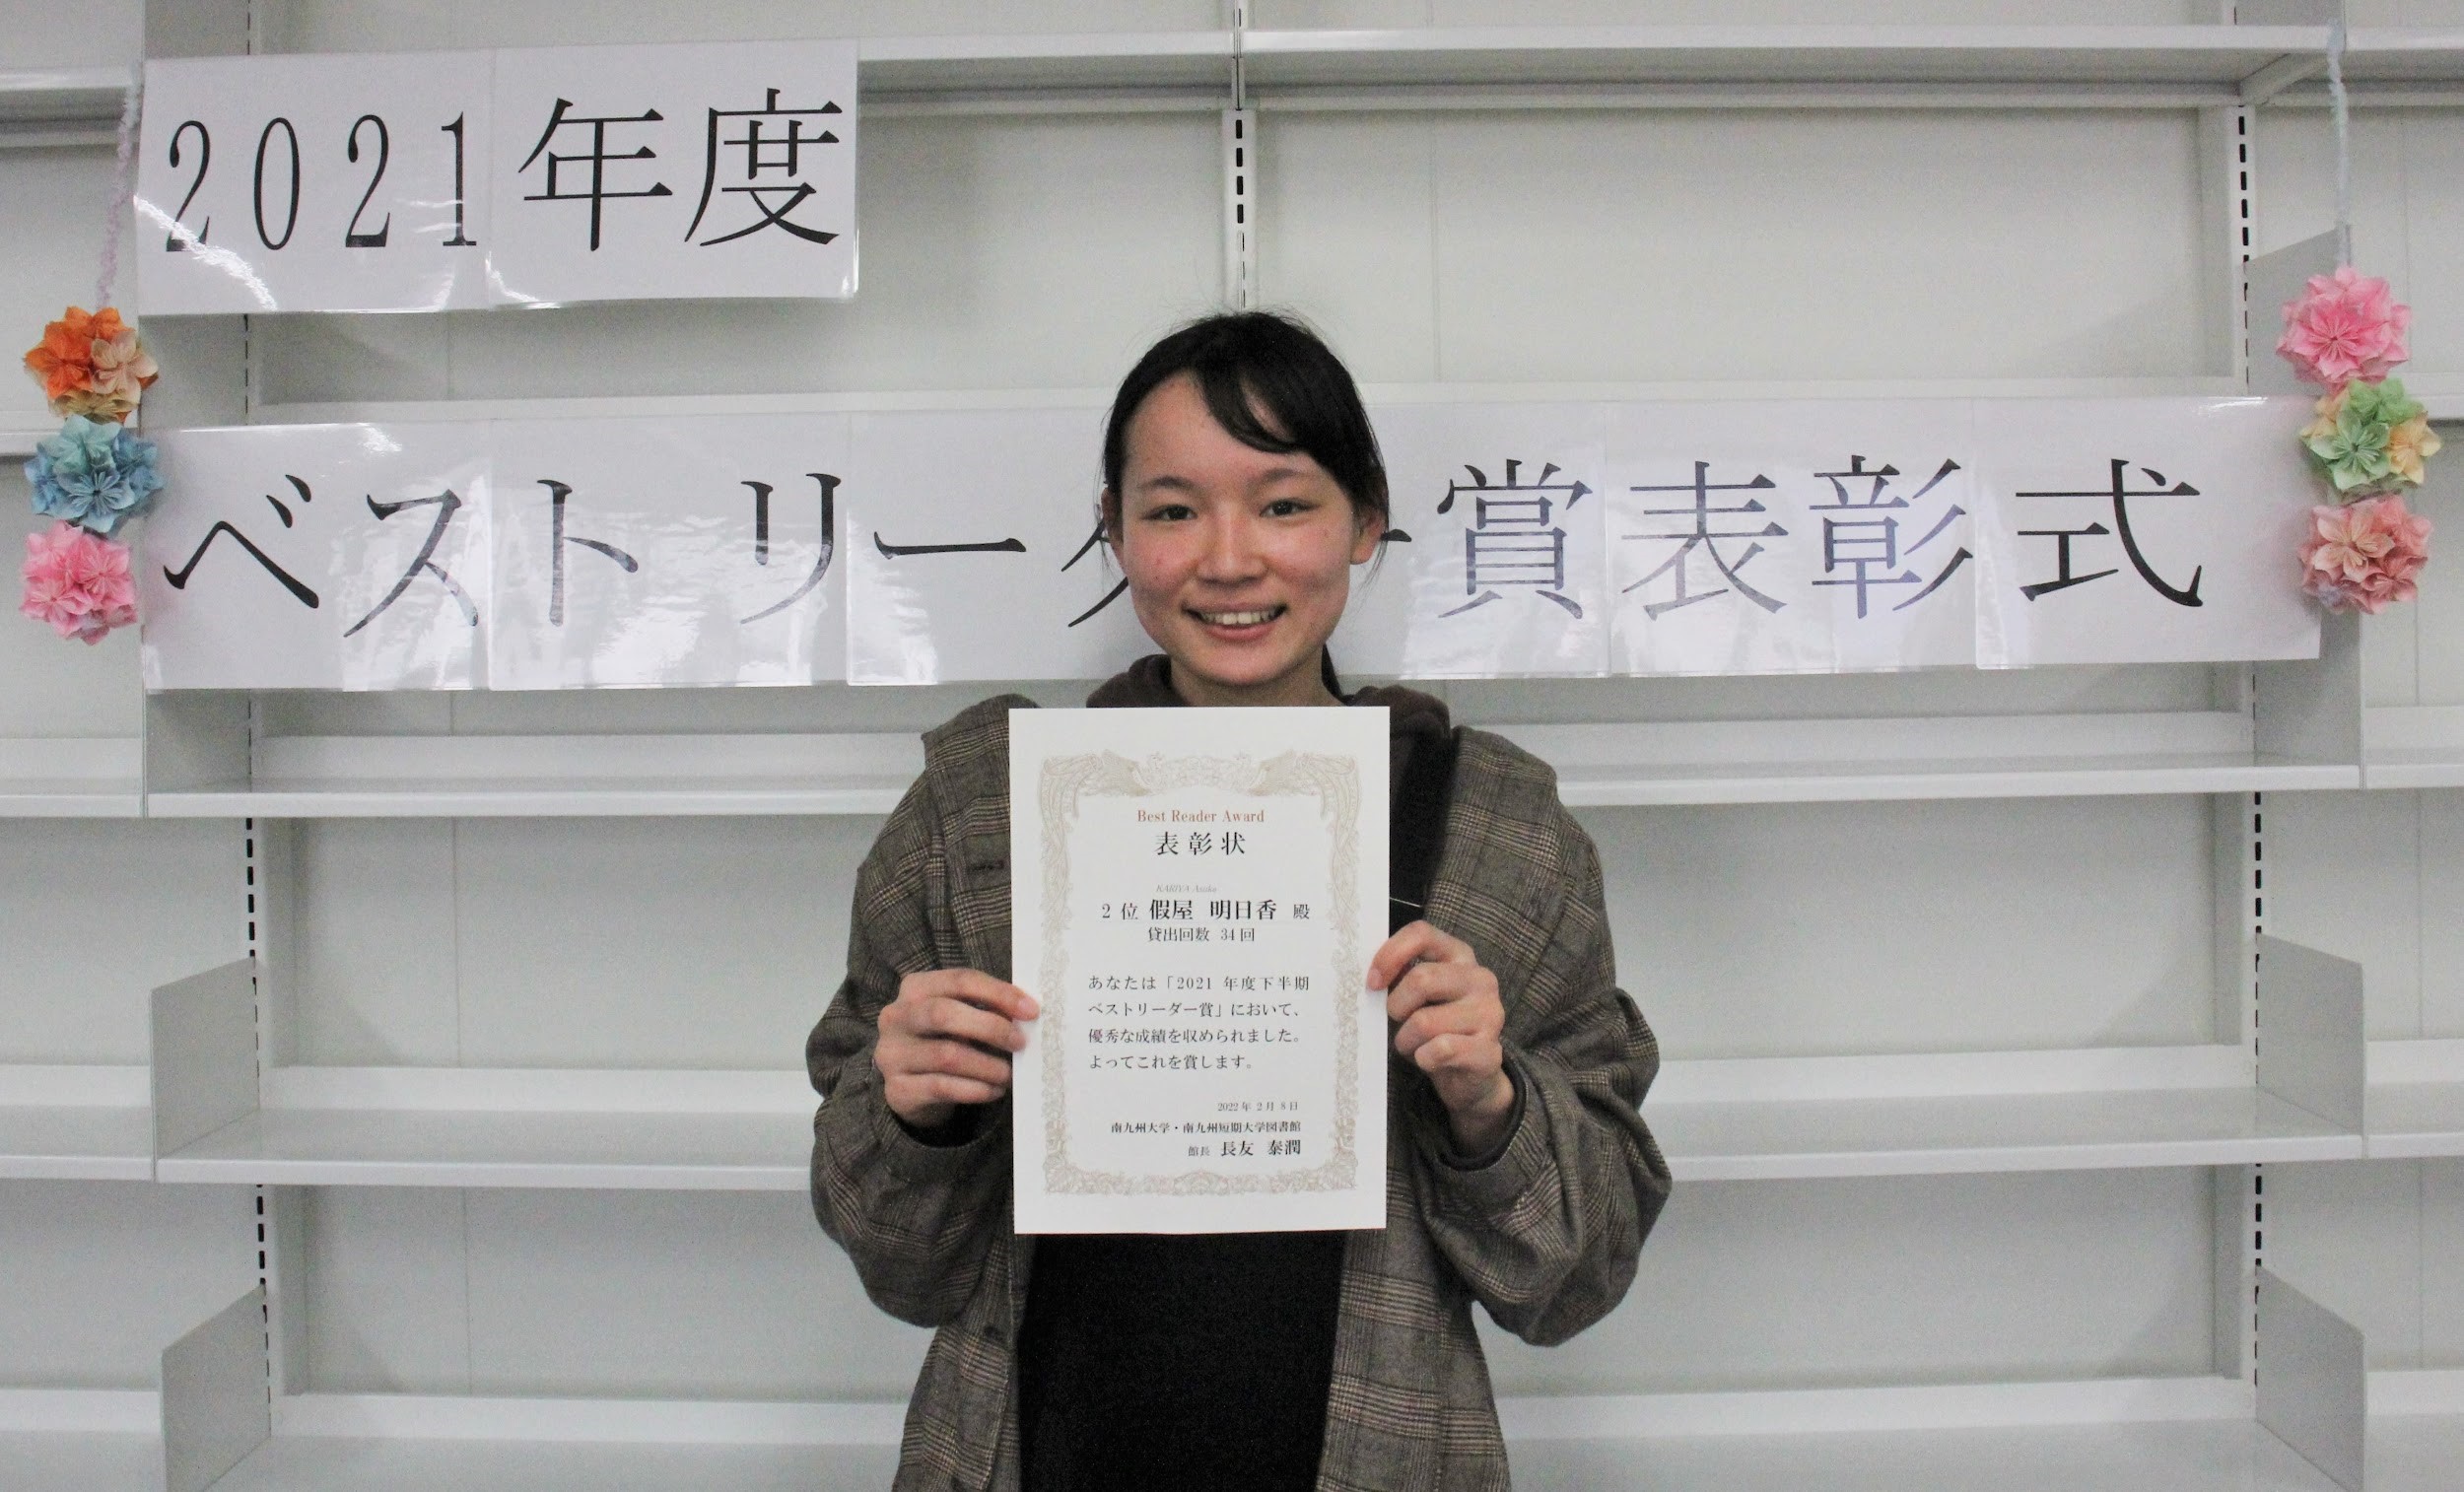 2021年度
ベストリーダー賞表彰式
Best Reader Award
表彰状
KARIYA Asuka
2位 假屋 明日香 殿
貸出回数 34回
あなたは「2021 年度下半期
ベストリーダー賞」において、
優秀な成績を収められました。
よってこれを賞します。
2022年 2月 8日
南九州大学・南九州短期大学図書館
館長 長友 泰潤